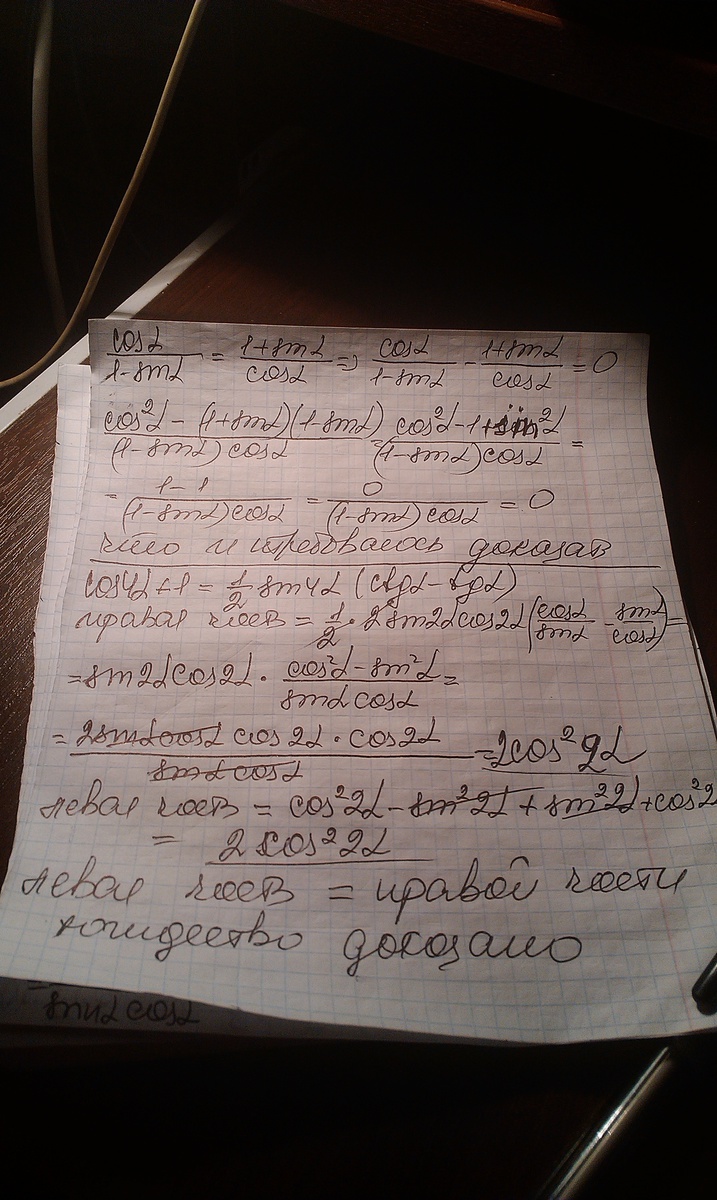 cosα/(1-sinα) = (1+sinα)/cosα => cosα/(1-sinα) - (1+sinα)/cosα = 0
(cos²α - (1+sinα)(1-sinα))/((1-sinα)cosα) = (cos²α-1+sin²α)/((1-sinα)cosα) =
= (1-1)/((1-sinα)cosα) = 0/((1-sinα)cosα) = 0
что и требовалось доказать
cos4α+1 = 1/2 sin4α (ctgα-tgα)
правая часть = 1/2 · 2sin2αcos2α(cosα/sinα - sinα/cosα) =
= sin2αcos2α · (cos²α-sin²α)/(sinα cosα) =
= (2sinαcosα cos2α · cos2α)/(sinα cosα) = 2cos²2α
левая часть = cos²2α - sin²2α + sin²2α + cos²2α
= 2cos²2α
левая часть = правой части
тождество доказано
=
sinα cosα